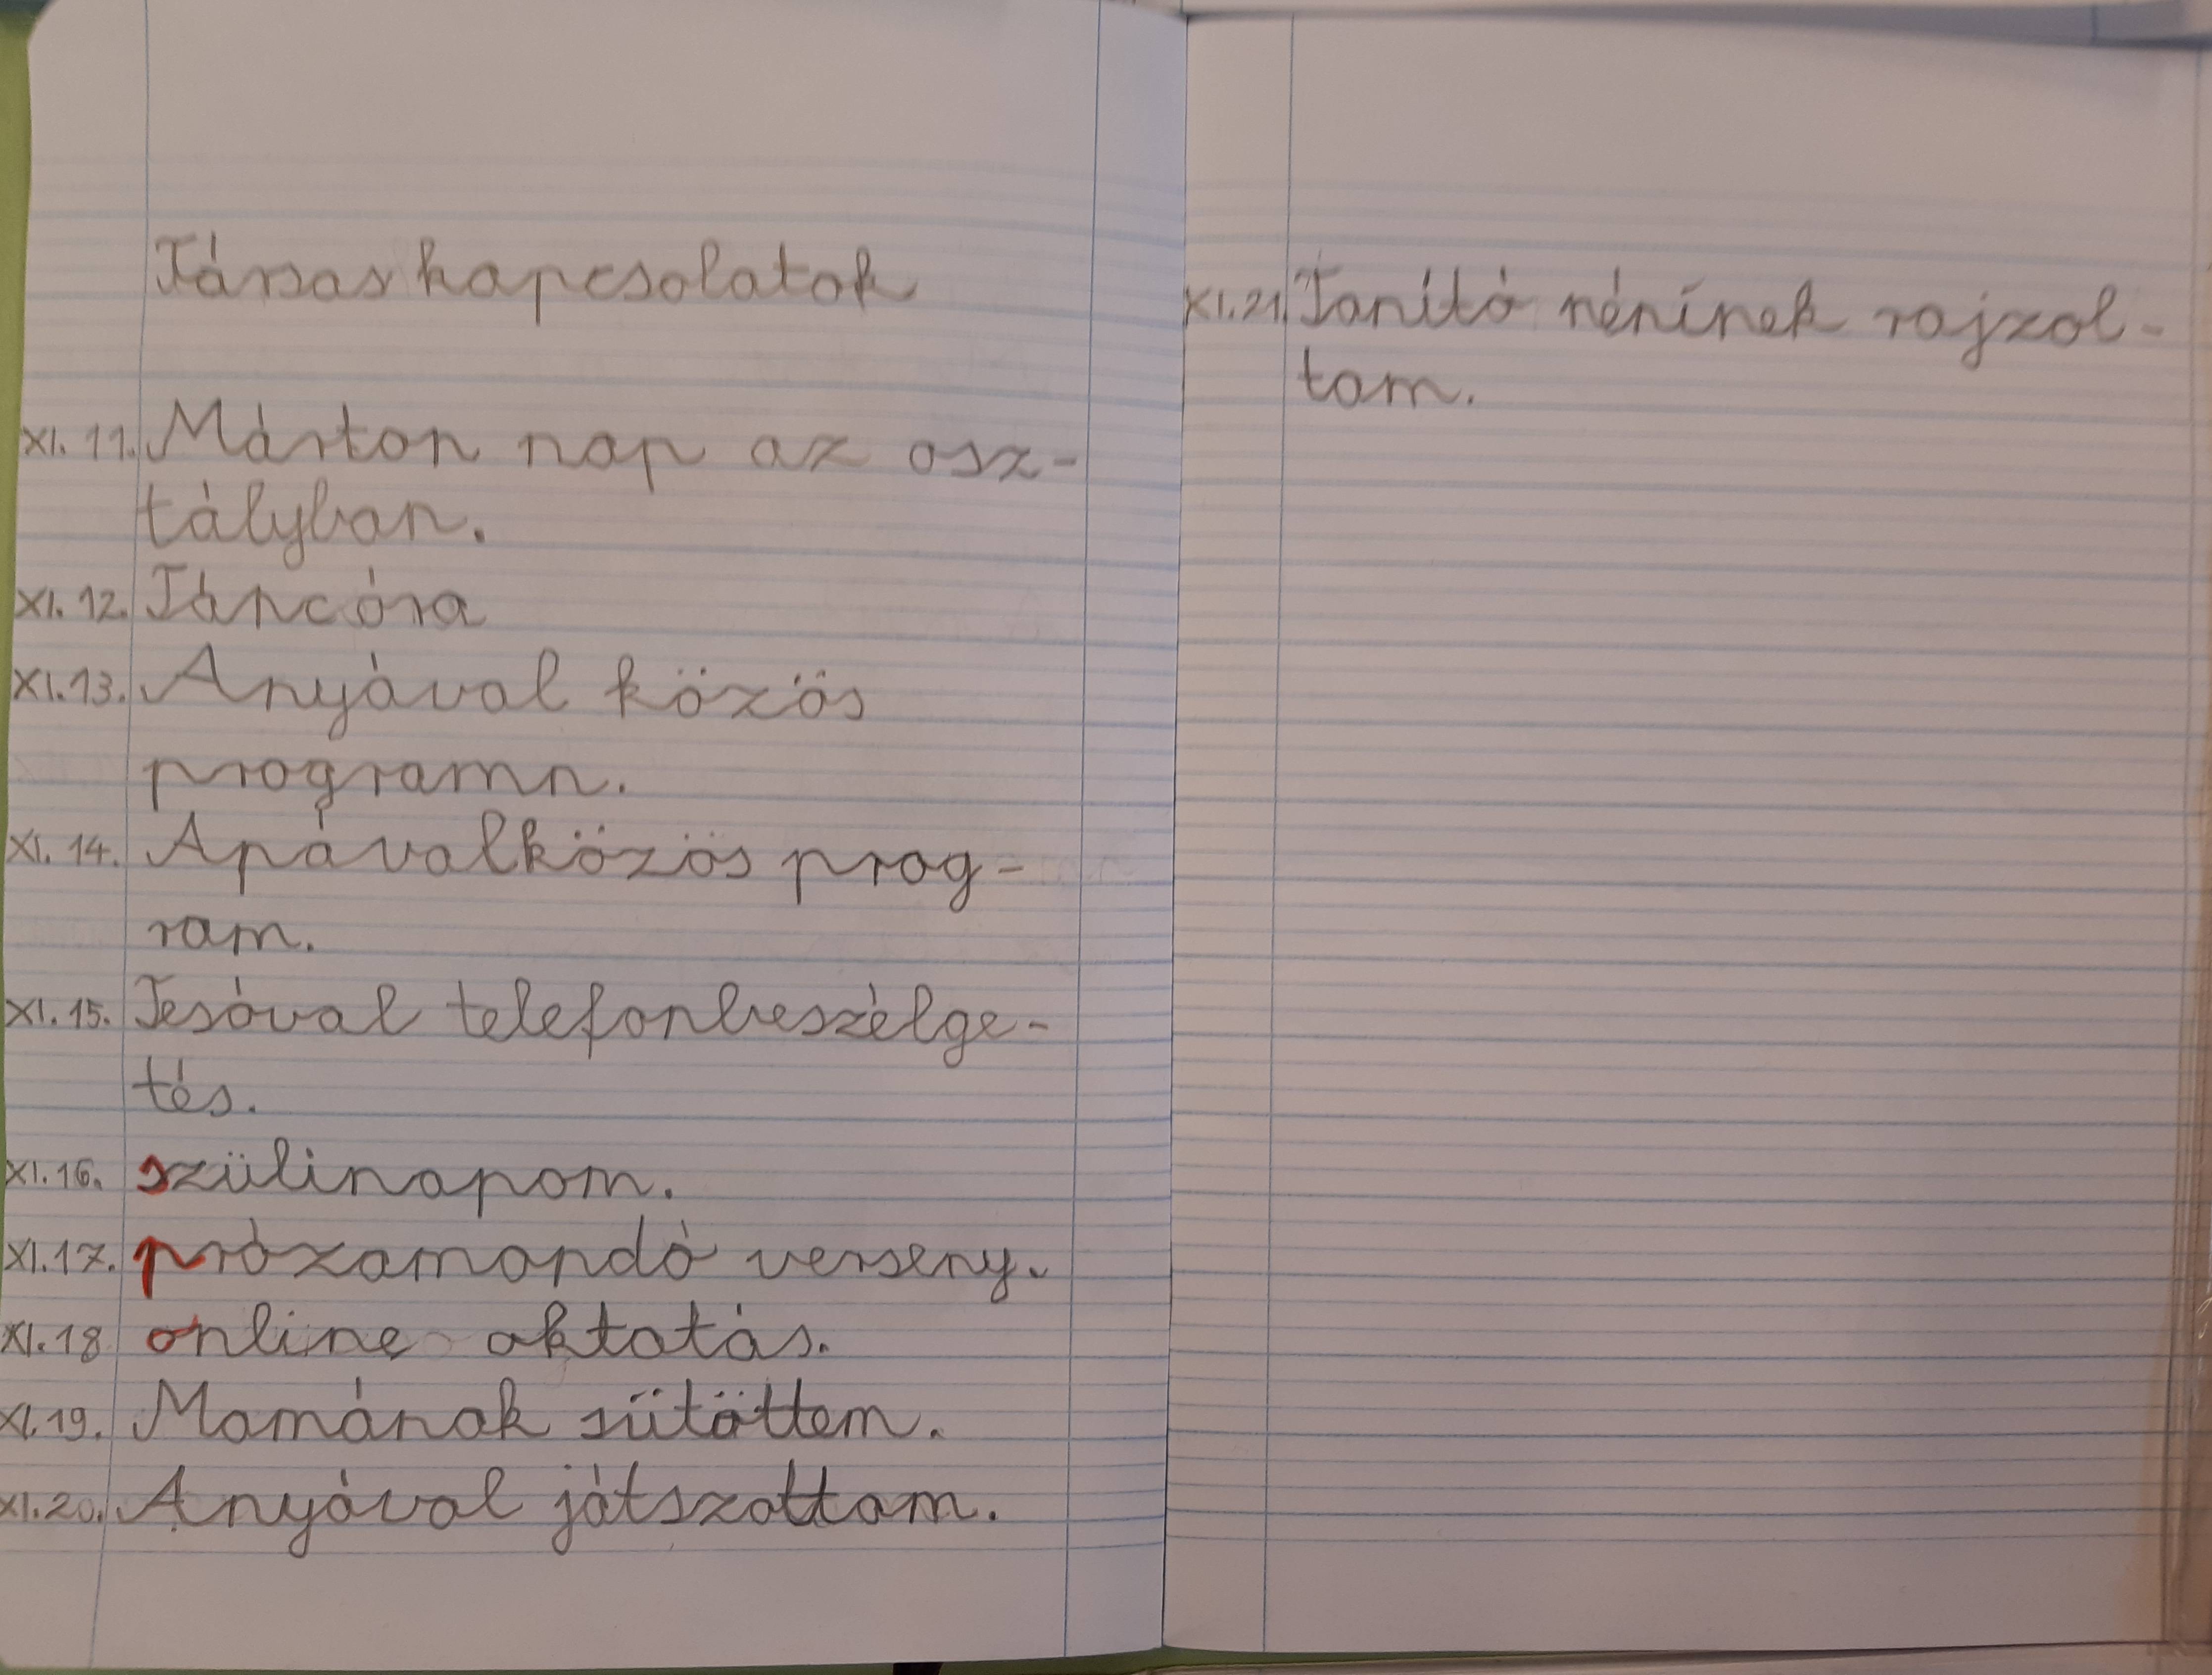 Társas kapcsolatok
XI. 11. Márton nap az osz-
tályban.
XI. 12. Táncóra
XI. 13. Anyával közös
programn.
XI. 14. Apával közös prog-
ram.
XI. 15. Tesóval telefonbeszélge-
tés.
XI. 16. szülinapom.
XI. 17. prózamondó verseny.
XI. 18. online oktatás.
XI. 19. Mamának sütöttem.
XI. 20. Anyával játszottam.
XI. 21. Tanító nénínek rajzol-
tam.